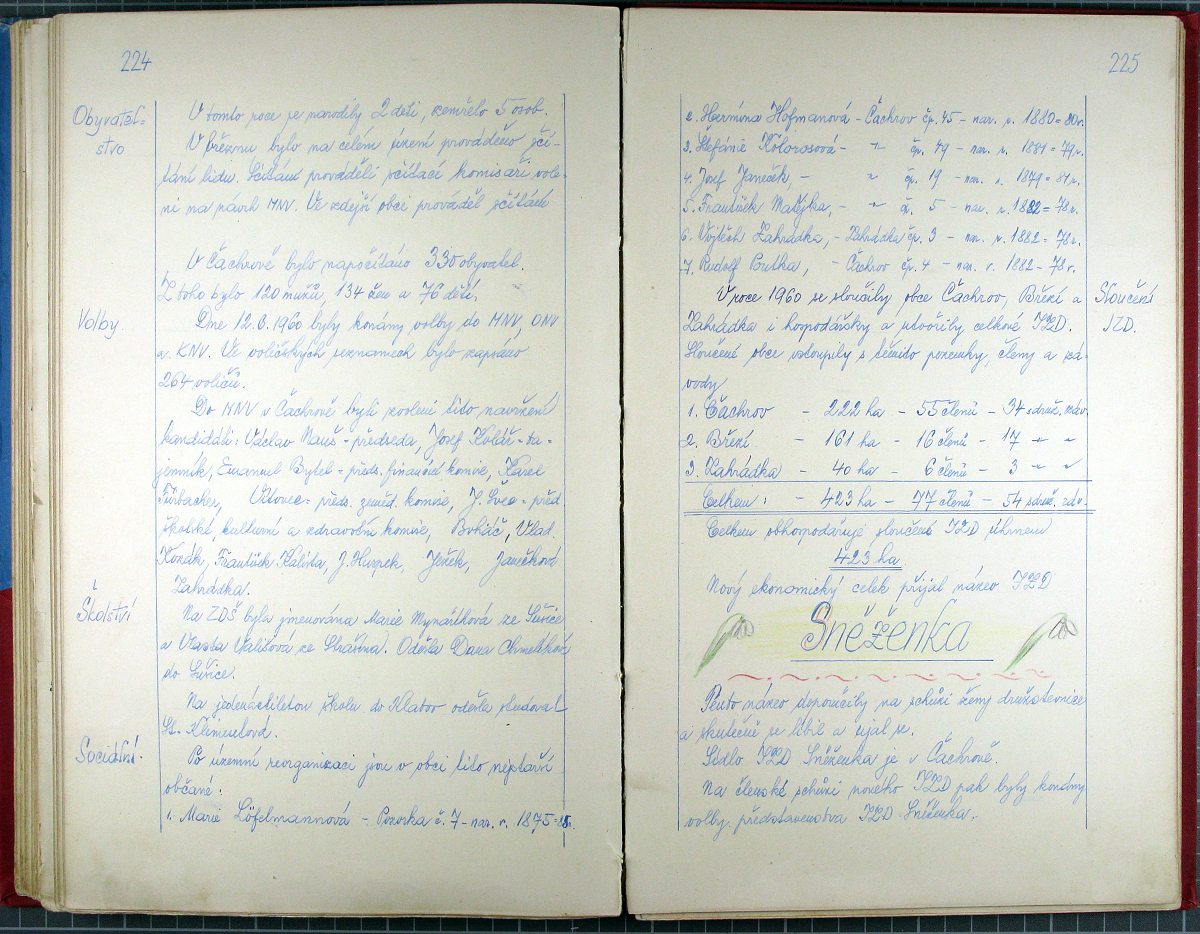 224
Obyvatel-
stvo
V tomto roce se narodily 2 děti, zemřelo 5 osob.
V březnu bylo na celém území prováděno sčí-
tání lidu. Sčítání prováděli sčítací komisaři vole-
ni na návrh MNV. Ve zdejší obci prováděl sčítání
V Čachrově bylo napočítáno 330 obyvatel.
Z toho bylo 120 mužů, 134 žen a 76 dětí.
Volby.
Dne 12.6.1960 byly konány volby do MNV, ONV
a KNV. Ve voličských seznamech bylo zapsáno
264 voličů.
Do MNV v Čachrově byli zvoleni tito navržení
kandidáti: Václav Nauš - předseda, Josef Kolář - ta-
jemník, Emanuel Bytel - předs. finanční komise, Karel
Fürbacher, Vítovec - předs. zeměd. komise, J. Švec - před.
školské, kulturní a zdravotní komise, Vlad.
Kozák, František Kalista, J. Huspek, Ježek, Janečková
Zahrádka.
Školství
Na ZDŠ byla jmenována Marie ze Sušice
a Vlasta Vališová ze Strašína. Odešla Dana Chmelíková
do Sušice.
Na jedenáctiletou školu do Klatov odešla studovat
St. Klimentová.
Sociální.
Po územní reorganizaci jsou v obci tito nejstarší
občané:
1. Marie Löfelmannová - č. 7 - nar. r. 1875 =
225
2. Hermína Hofmanová - Čachrov čp. 45 - nar. r. 1880 = 80 r.
3. Štefánie - " čp. 49 - nar. r. 1881 = 79 r.
4. Josef Janeček, - " čp. 19 - nar. r. 1879 = 81 r.
5. František Matějka, - " čp. 5 - nar. r. 1882 = 78 r.
6. Vojtěch Zahrádka, - Zahrádka čp. 3 - nar. r. 1882 = 78 r.
7. Rudolf Boutka, - Čachrov čp. 4 - nar. r. 1882 - 78 r.
Sloučení
JZD.
V roce 1960 se sloučily obce Čachrov, Březí a
Zahrádka i hospodářsky a utvořily celkové JZD.
Sloučené obce vstoupily s těmito pozemky, členy a zá-
vody
1. Čachrov - 222 ha - 55 členů - 34 sdruž. záv.
2. Březí - 161 ha - 16 členů - 17 " "
3. Zahrádka - 40 ha - 6 členů - 3 " "
Celkem: - 423 ha - 77 členů - 54 sdruž. záv.
Celkem obhospodařuje sloučené JZD úhrnem
423 ha
Nový ekonomický celek přijal název JZD
Sněženka
Tento název doporučily na schůzi ženy družstevnice
a skutečně se líbil a ujal se.
Sídlo JZD Sněženka je v Čachrově.
Na členské schůzi nového JZD pak byly konány
volby představenstva JZD Sněženka.